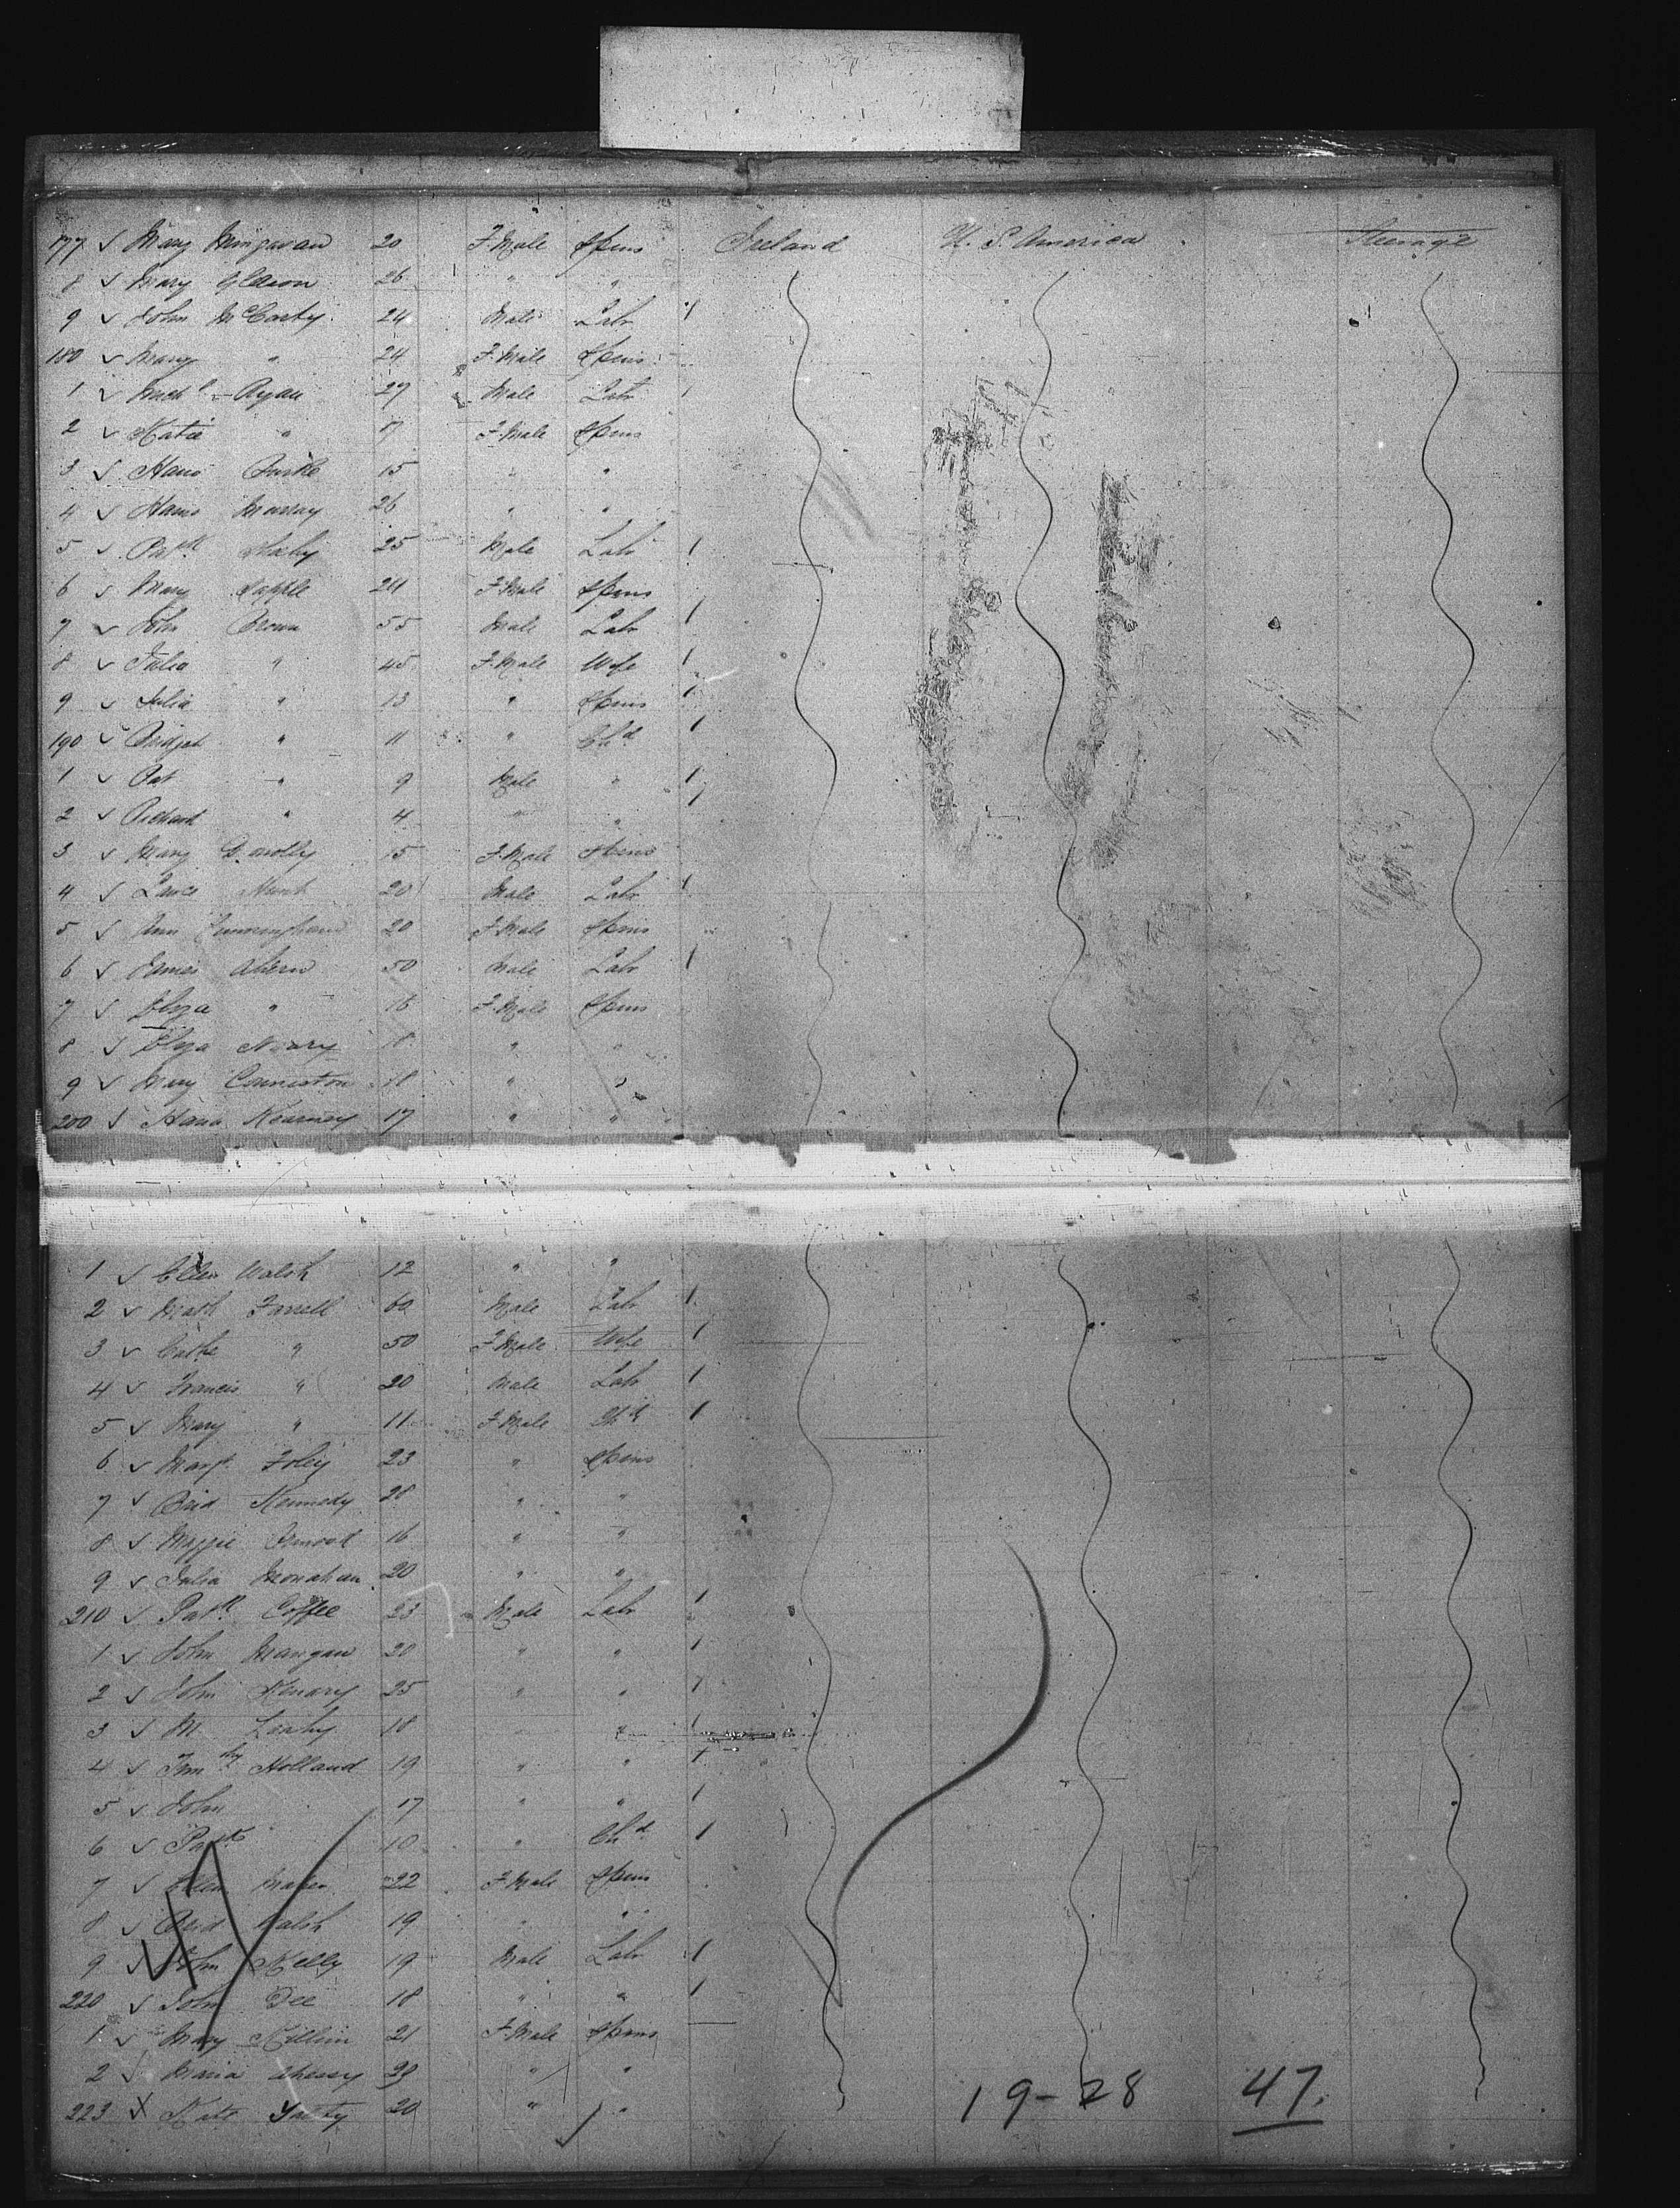 177 Mary Mingavan 20 F.Male Spins Ireland U. S. America Steerage
8 Mary Gleeson 26 " "
9 John McCarty 24 Male Labr 1
180 Mary " 24 F.Male Spins
1 Michl Ryan 27 Male Labr 1
2 Katie " 17 F.Male Spins
3 Hano Burke 15 " "
4 Hano Murray 26 " "
5 Patk 25 Male Labr 1
6 Mary Supple 24 F.Male Spins
7 John Brown 55 Male Labr 1
8 Julia " 45 F.Male Wife 1
9 Julia " 13 " Spins 1
190 Bridget " 11 " Chd 1
1 Pat " 9 Male " 1
2 Richard " 4 " " 1
3 Mary 15 F.Male Spins
4 Lance 20 Male Labr 1
5 Ann Cunningham 20 F.Male Spins
6 James Ahern 50 Male Labr 1
7 Eliza " 16 F.Male Spins
8 Eliza Neary 18 " "
9 Mary Conniston 18 " "
200 Hana Kearney 17 " "
1 Ellen Walsh 12 " "
2 Math Farrell 60 Male Labr 1
3 Cathe " 50 F.Male Wife 1
4 Francis " 20 Male Labr 1
5 Mary " 11 F.Male Chd 1
6 Margt Foley 23 " Spins
7 Brid Kennedy 28 " "
8 Maggie Ormond 16 " "
9 Julia Monahan 20 " "
210 Patk Coffee 23 Male Labr 1
1 John Mangan 20 " " 1
2 John Kenary 25 " " 1
3 M Leahy 18 " " 1
4 Timthy Holland 19 " " 1
5 John 17 " " 1
6 Patk 10 " Chd 1
7 Ellen Maher 22 F.Male Spins
8 Brid Walsh 19 " "
9 John Kelly 19 Male Labr 1
220 John Dee 18 " " 1
1 Mary Killim 21 F.Male Spins
2 Maria 29 " "
223 Kate 20 " "
19-28 47.